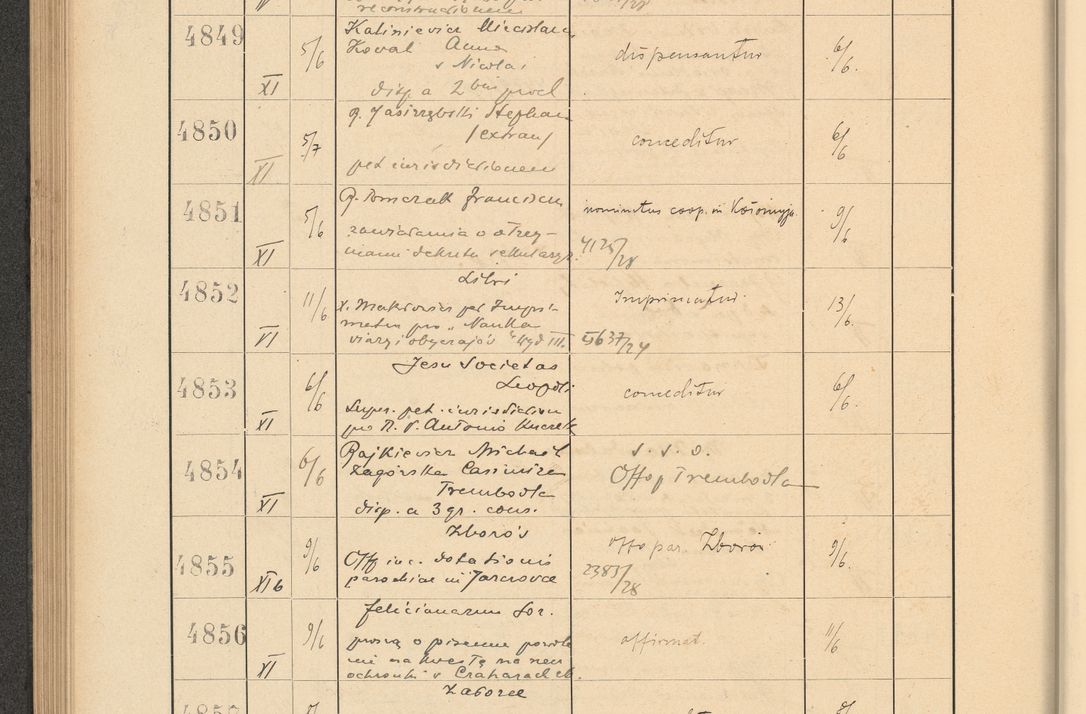 reconstructionem
4849 XI 5/6 Kalinievicz Miecislaus
Koval Anna
v Nicolai
disp. a 2bus procl
dispensantur 6/6.
4850 XI 5/7 q. Jastrzębski Stephan
/extran/
pet iurisdictionem
conceditur 6/6
4851 XI 5/6 q. Tomczak Franciscus
zawiadamia o otrzy-
maniu dekretu sekularyz.
nominatus coop. in Kołomyja
4125/28
9/6
4852 VI 11/6 Libri
X. Makłowicz pet Impri-
metur pro "Nauka
wiary i obyczajów" wyd III.
Imprimatur.
5637/24
13/6.
4853 XI 6/6 Jesu Societas
Leopoli
Super. pet. iurisdiction
pro R. P. Antonio Kuczek
conceditur 6/6.
4854 XI 6/6 Rajkievicz Michaël
Zagórska Casimira
Trembovla
disp. a 3 gr. cons.
s. s. o.
Offo p Trembovla
4855 XI b 9/6 Zborów
Off inc. dotationis
parochiae in Jarczovce
offo par. Zborów
2383/28
9/6.
4856 XI 9/6 Felicianarum Sor.
proszą o pisemne pozwole
nie na kwestę na rzecz
ochronki v
affirmat. 11/6
Zaborce